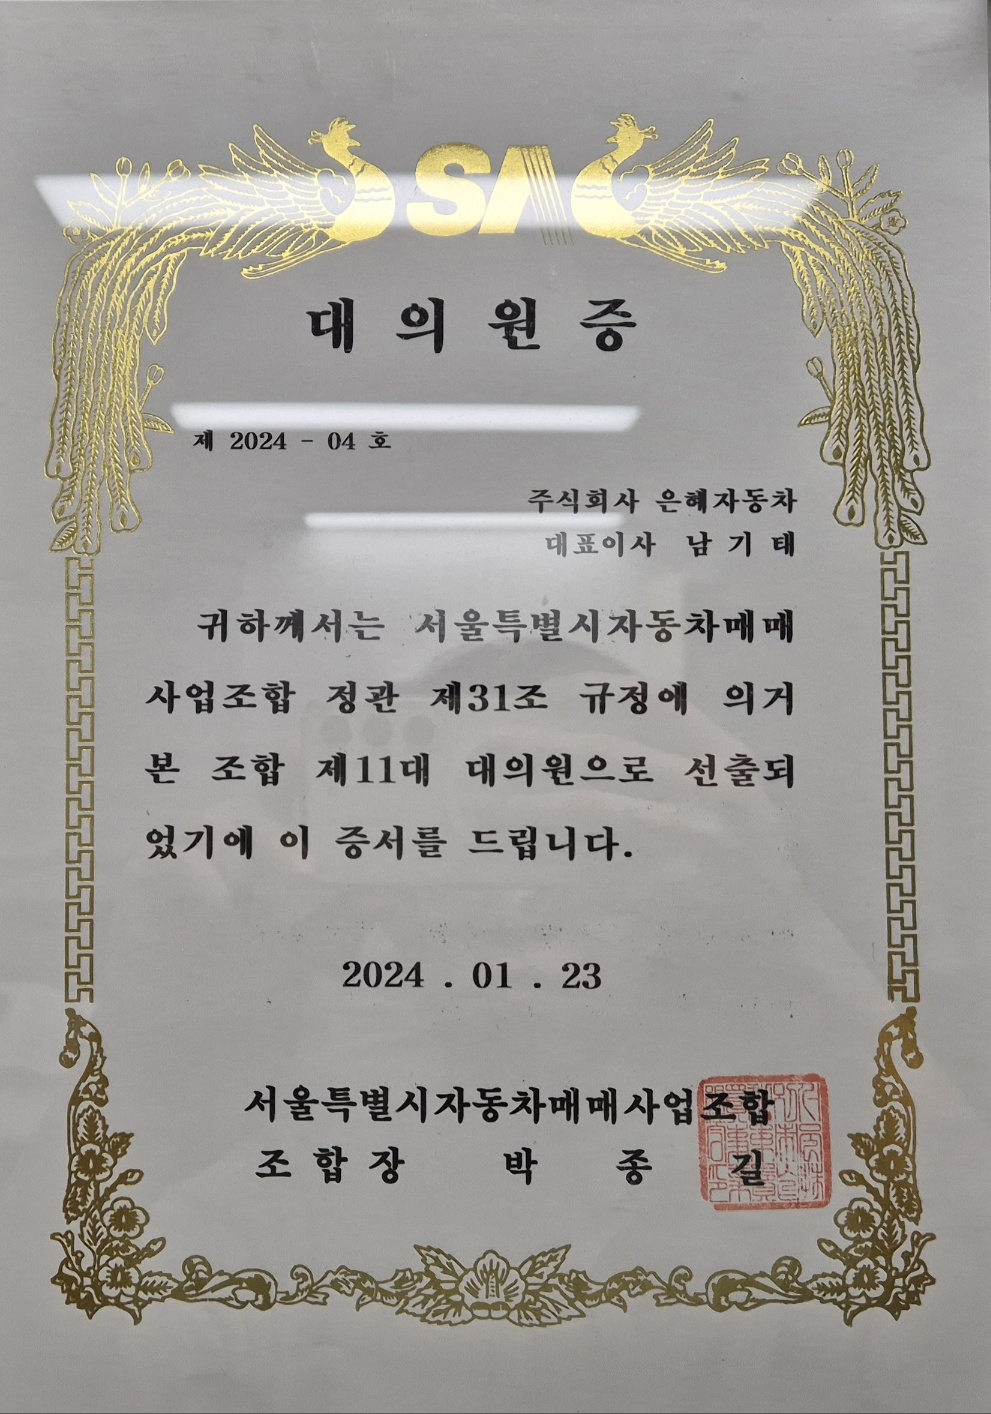 SA
대의원증
제 2024 - 04 호
주식회사 은혜자동차
대표이사 남 기 태
귀하께서는 서울특별시자동차매매
사업조합 정관 제31조 규정에 의거
본 조합 제11대 대의원으로 선출되
었기에 이 증서를 드립니다.
2024 . 01 . 23
서울특별시자동차매매사업조합
조합장 박 종 길